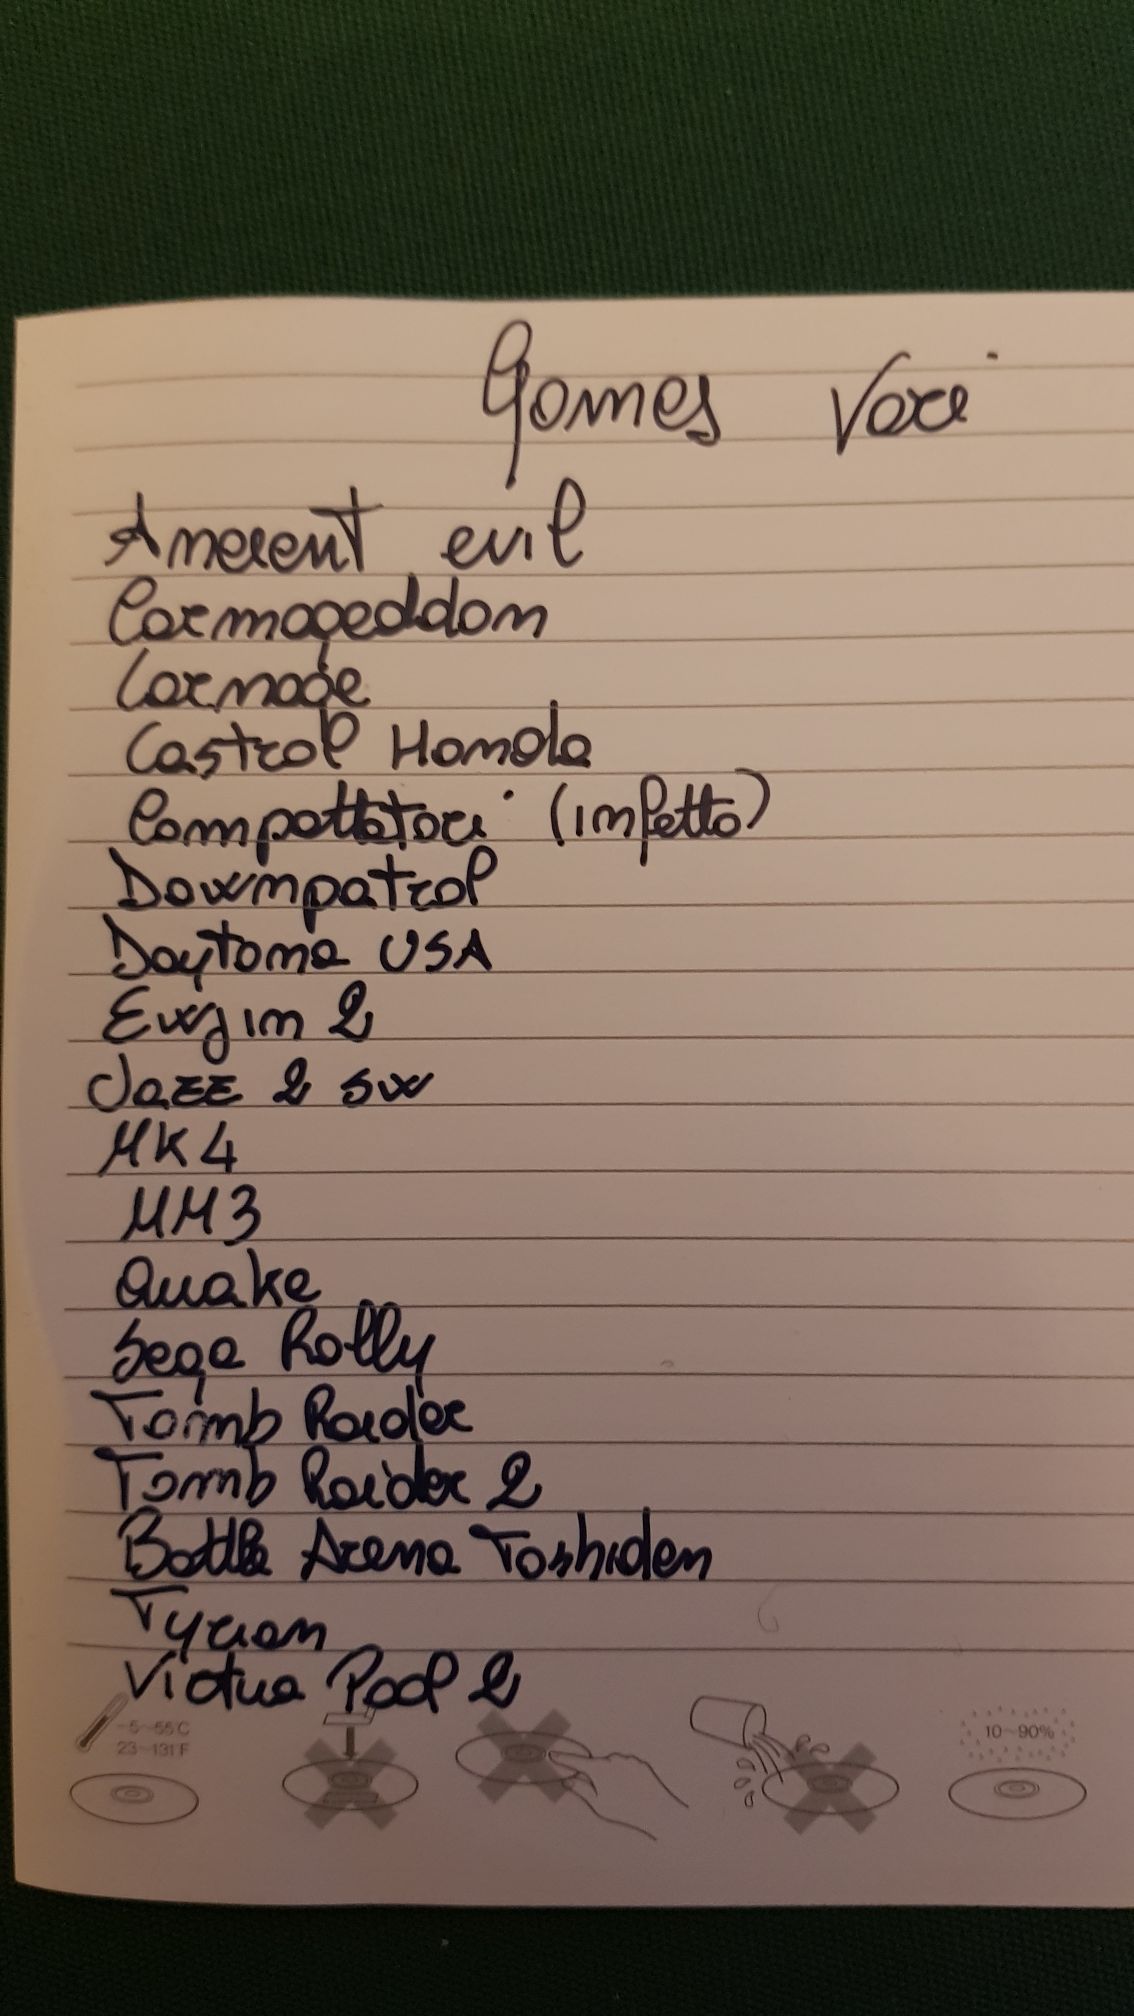 Games Vari
Anecent evil
Carmageddon
Carnage
Castrol Honda
Compattatori (infetto)
Downpatrol
Daytona USA
Ewjim 2
Jazz 2 sw
MK4
MM3
Quake
Sega Rally
Tomb Raider
Tomb Raider 2
Battle Arena Toshiden
Tyrian
Virtua Pool 2
-5~55C
23~131F
10~90%